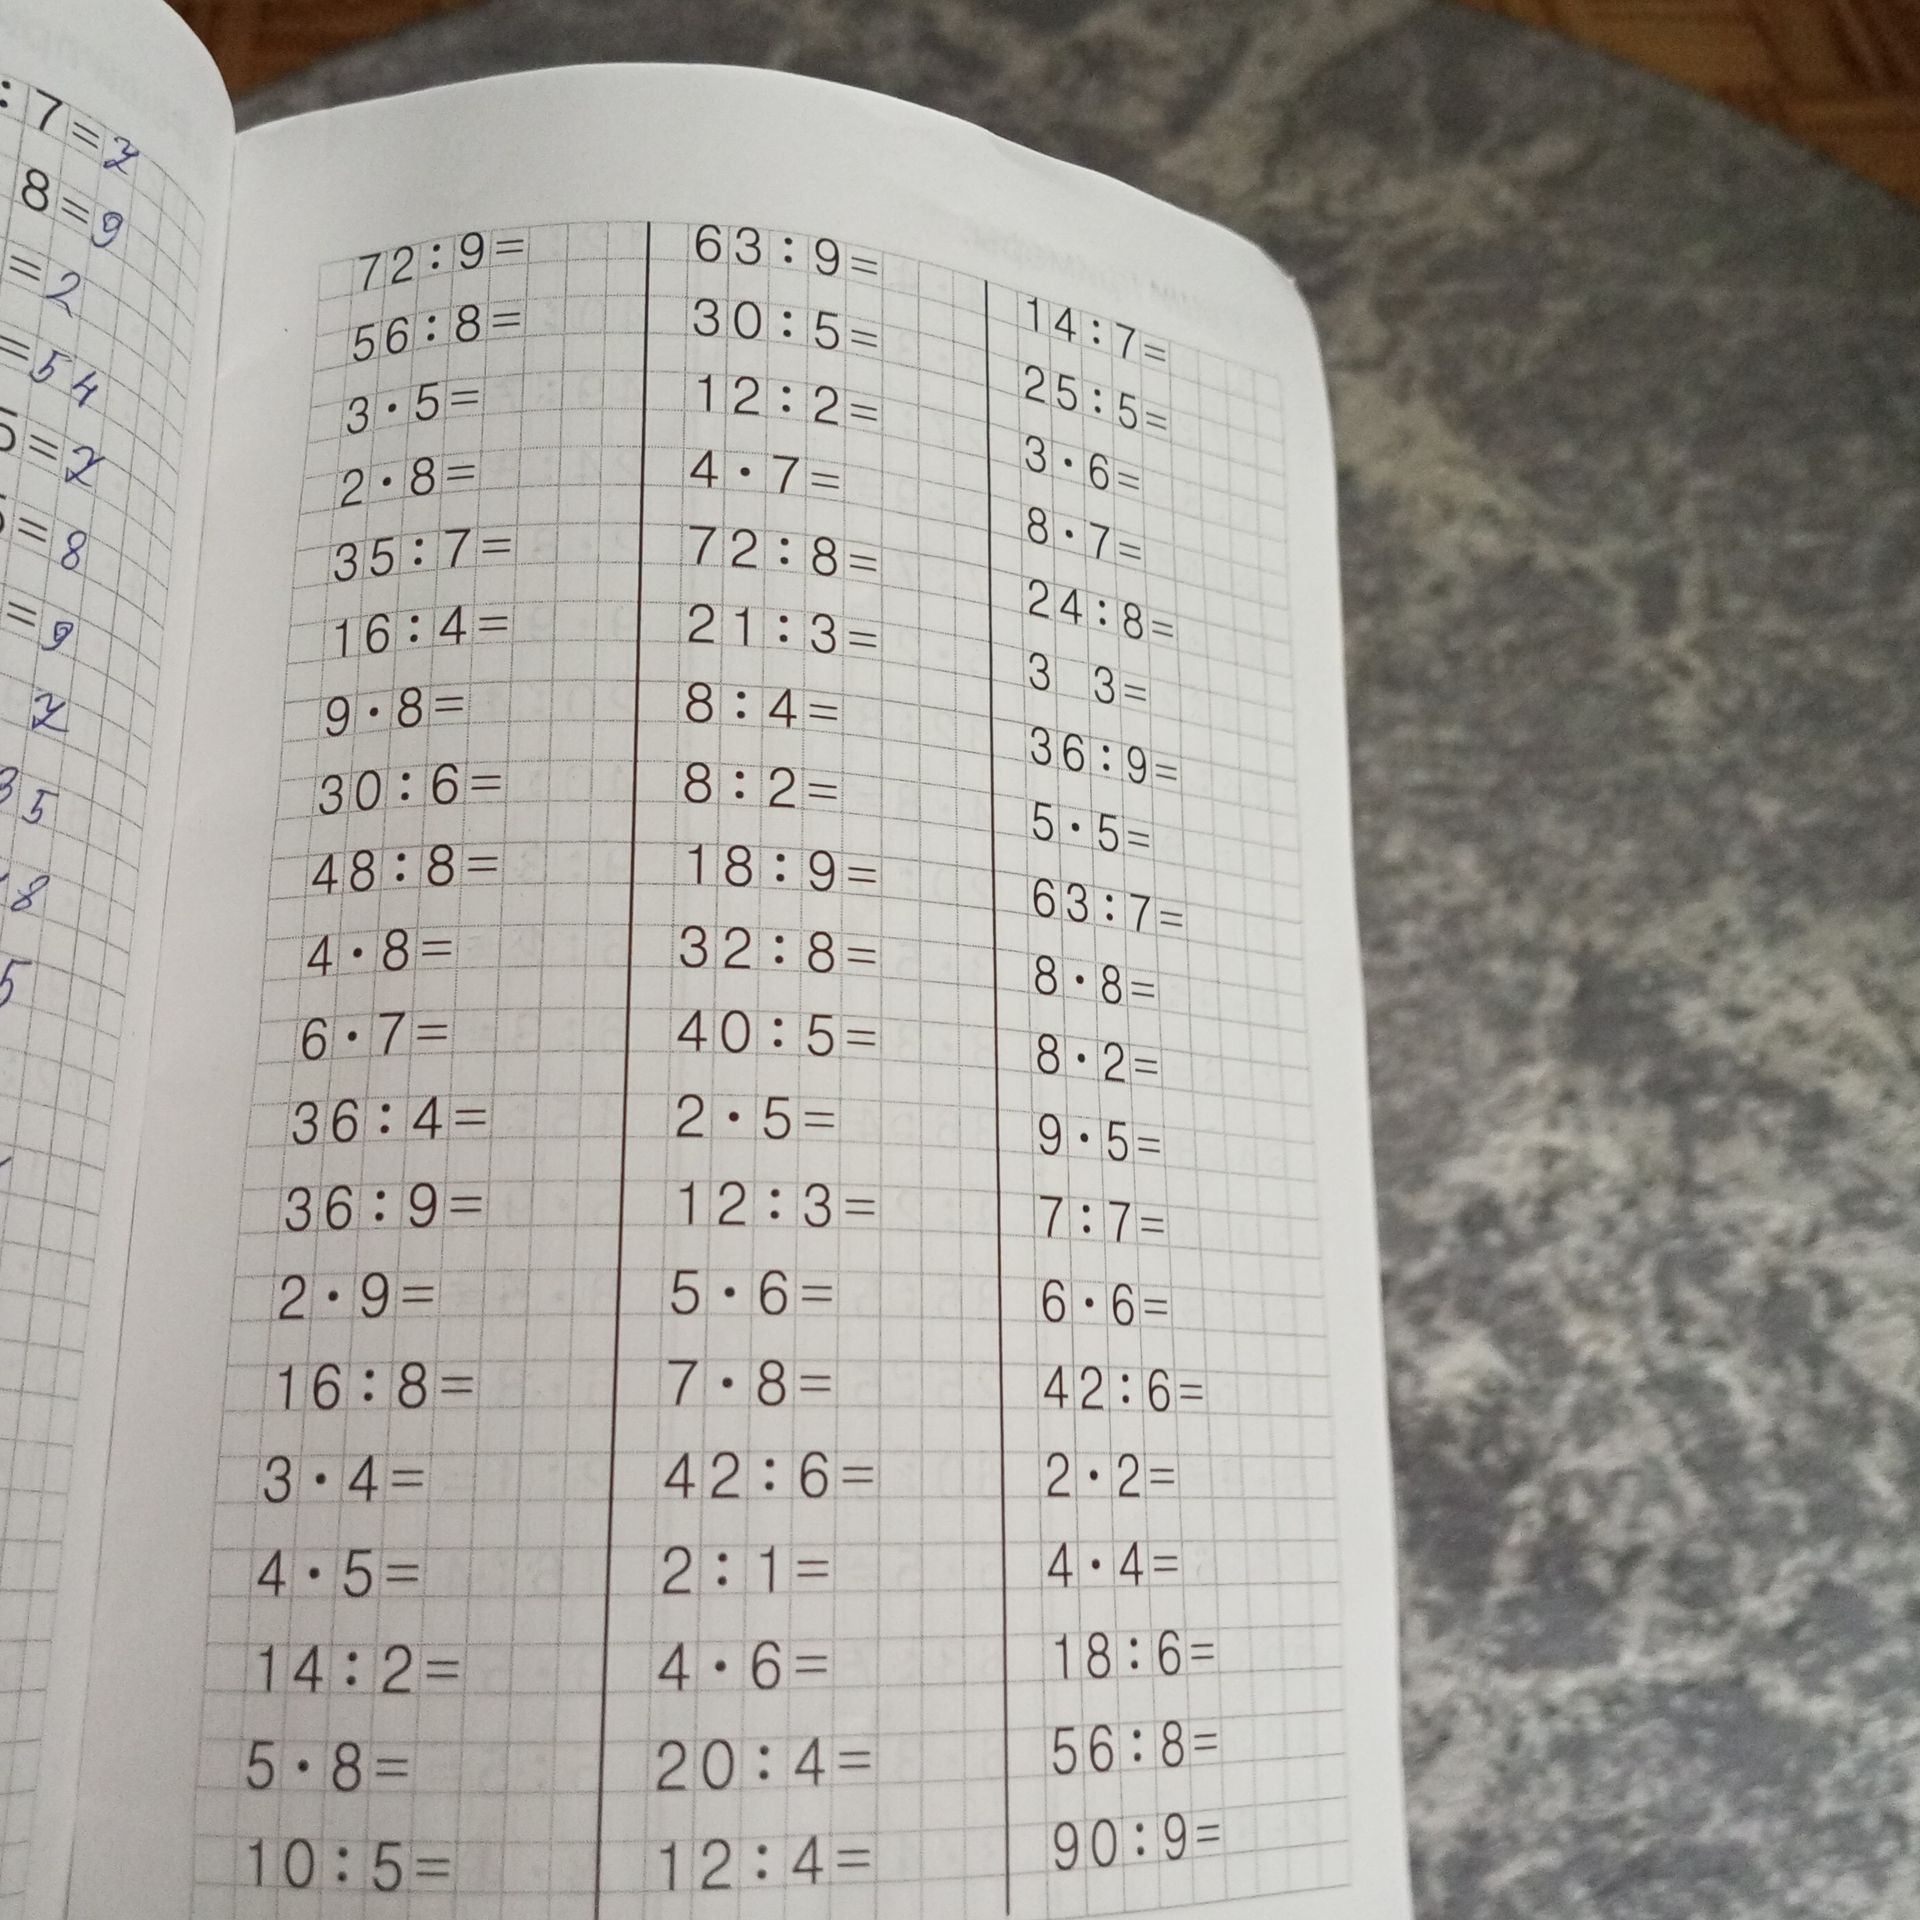 : 7 = 7
8 = 9
= 2
= 54
5 = 7
= 8
= 9
7
35
8
5
72 : 9 =
56 : 8 =
3 · 5 =
2 · 8 =
35 : 7 =
16 : 4 =
9 · 8 =
30 : 6 =
48 : 8 =
4 · 8 =
6 · 7 =
36 : 4 =
36 : 9 =
2 · 9 =
16 : 8 =
3 · 4 =
4 · 5 =
14 : 2 =
5 · 8 =
10 : 5 =
63 : 9 =
30 : 5 =
12 : 2 =
4 · 7 =
72 : 8 =
21 : 3 =
8 : 4 =
8 : 2 =
18 : 9 =
32 : 8 =
40 : 5 =
2 · 5 =
12 : 3 =
5 · 6 =
7 · 8 =
42 : 6 =
2 : 1 =
4 · 6 =
20 : 4 =
12 : 4 =
14 : 7 =
25 : 5 =
3 · 6 =
8 · 7 =
24 : 8 =
3 3 =
36 : 9 =
5 · 5 =
63 : 7 =
8 · 8 =
8 · 2 =
9 · 5 =
7 : 7 =
6 · 6 =
42 : 6 =
2 · 2 =
4 · 4 =
18 : 6 =
56 : 8 =
90 : 9 =